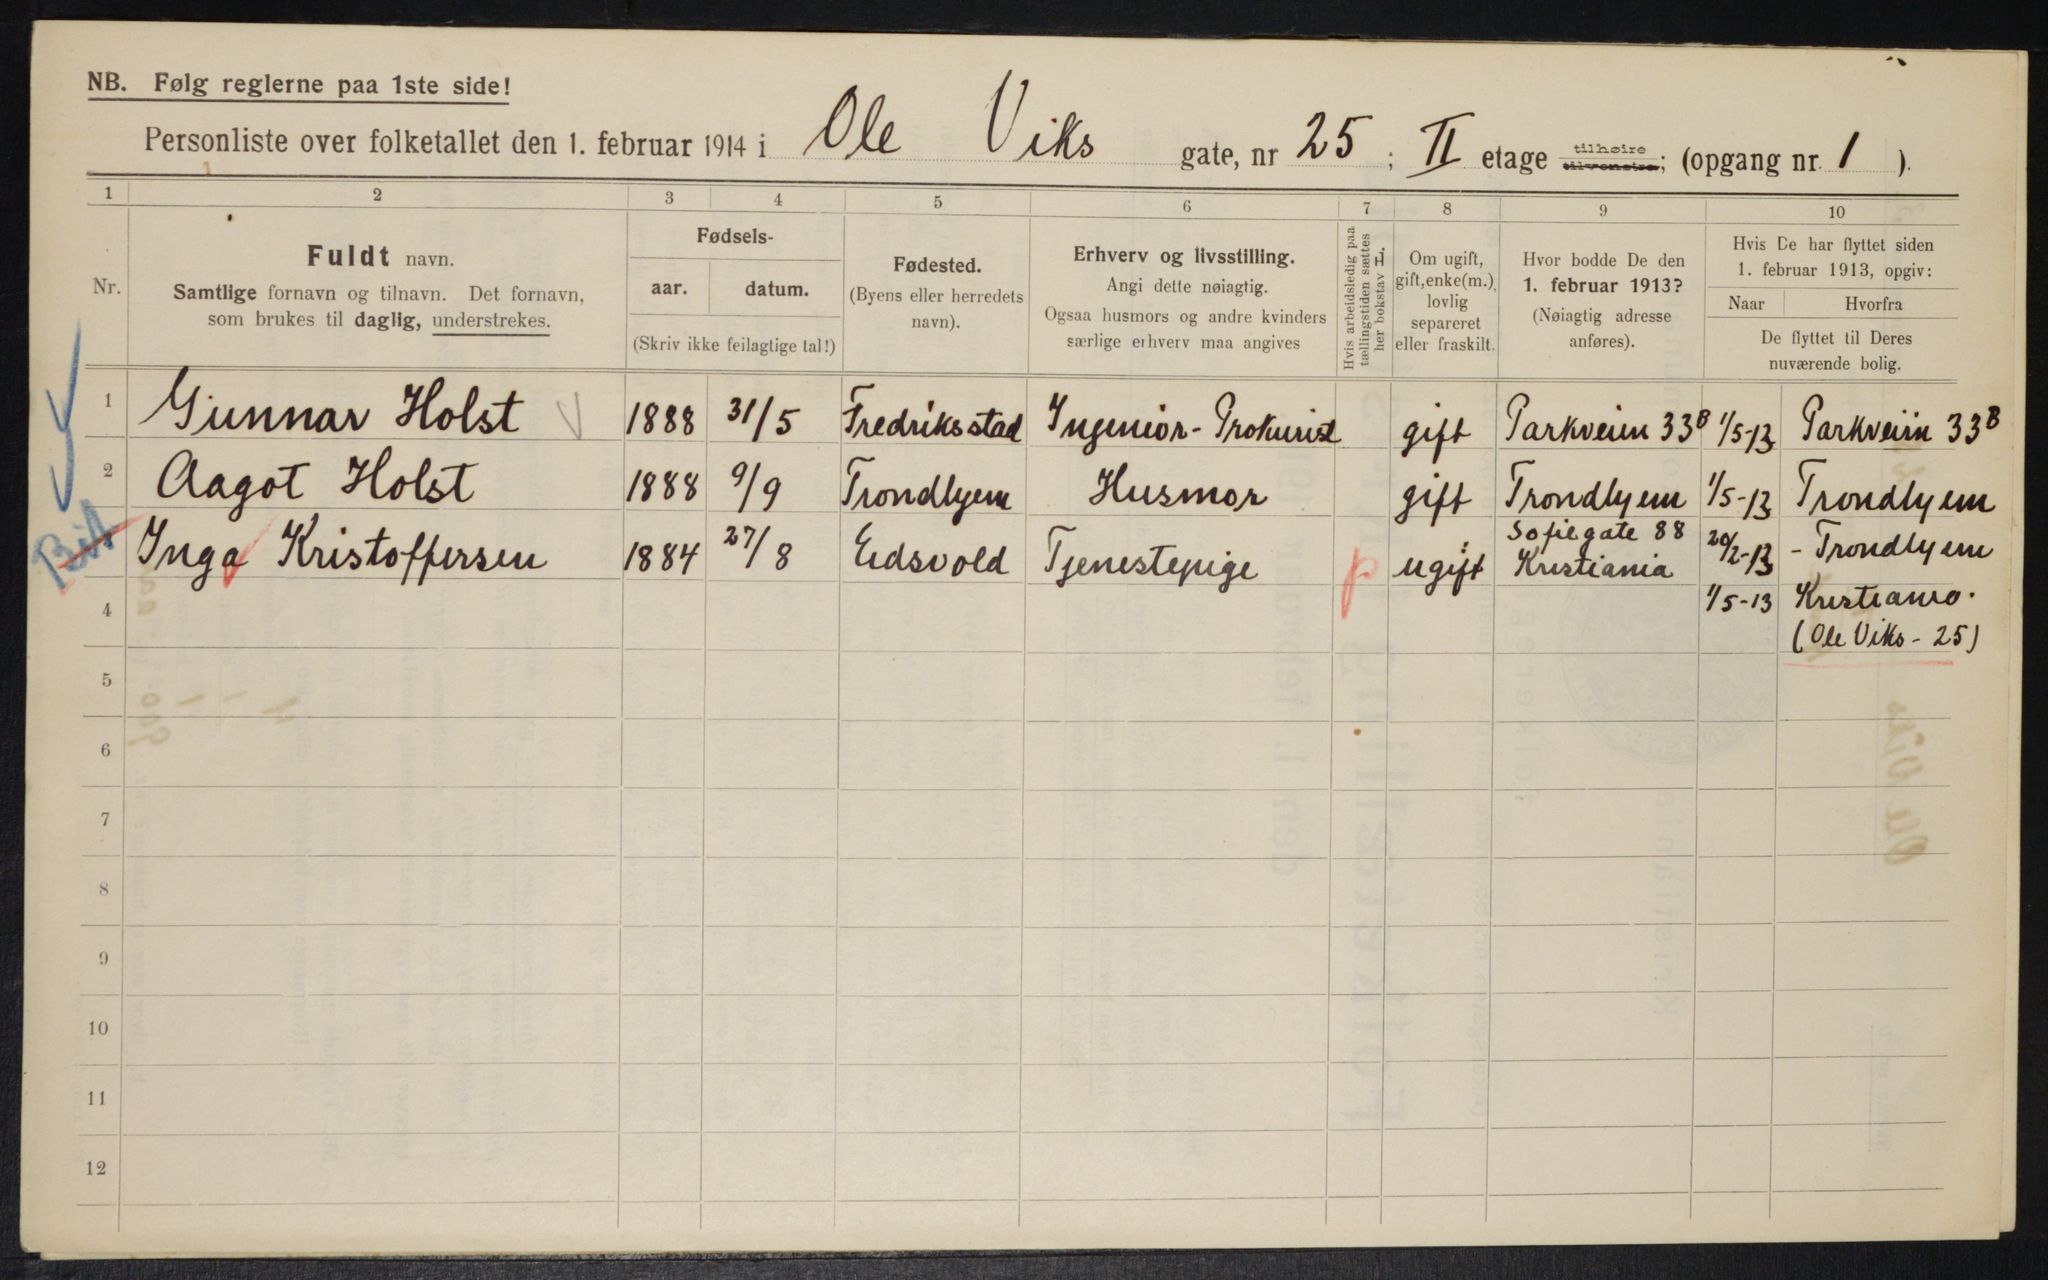 NB. Følg reglerne paa 1ste side!
Personliste over folketallet den 1. februar 1914 i Ole Viks gate, nr 25 ; II etage tilhøire tilvenstre; (opgang nr. 1 ).
1 2 3 4 5 6 7 8 9 10
Nr.
Fuldt navn.
Samtlige fornavn og tilnavn. Det fornavn,
som brukes til daglig, understrekes.
Fødsels-
aar. datum.
(Skriv ikke feilagtige tal!)
Fødested.
(Byens eller herredets
navn).
Erhverv og livsstilling.
Angi dette nøiagtig.
Ogsaa husmors og andre kvinders
særlige erhverv maa angives
Hvis arbeidsledig paa
tællingstiden sættes
her bokstav L.
Om ugift,
gift, enke(m.),
lovlig
separeret
eller fraskilt.
Hvor bodde De den
1. februar 1913?
(Nøiagtig adresse
anføres).
Hvis De har flyttet siden
1. februar 1913, opgiv:
Naar Hvorfra
De flyttet til Deres
nuværende bolig.
1 Gunnar Holst 1888 31/5 Fredriksstad Ingeniør-Prokurist gift Parkveien 33B 1/5-13 Parkveiin 33B
2 Aagot Holst 1888 9/9 Trondhjem Husmor gift Trondhjem 1/5-13 Trondhjem
Inga Kristoffersen 1884 27/8 Eidsvold Tjenestepige p ugift Sofiegate 88 Kristiania 20/2-13 - Trondhjem
4 1/5-13 Kristiania.
(Ole Viks - 25)
5
6
7
8
9
10
11
12